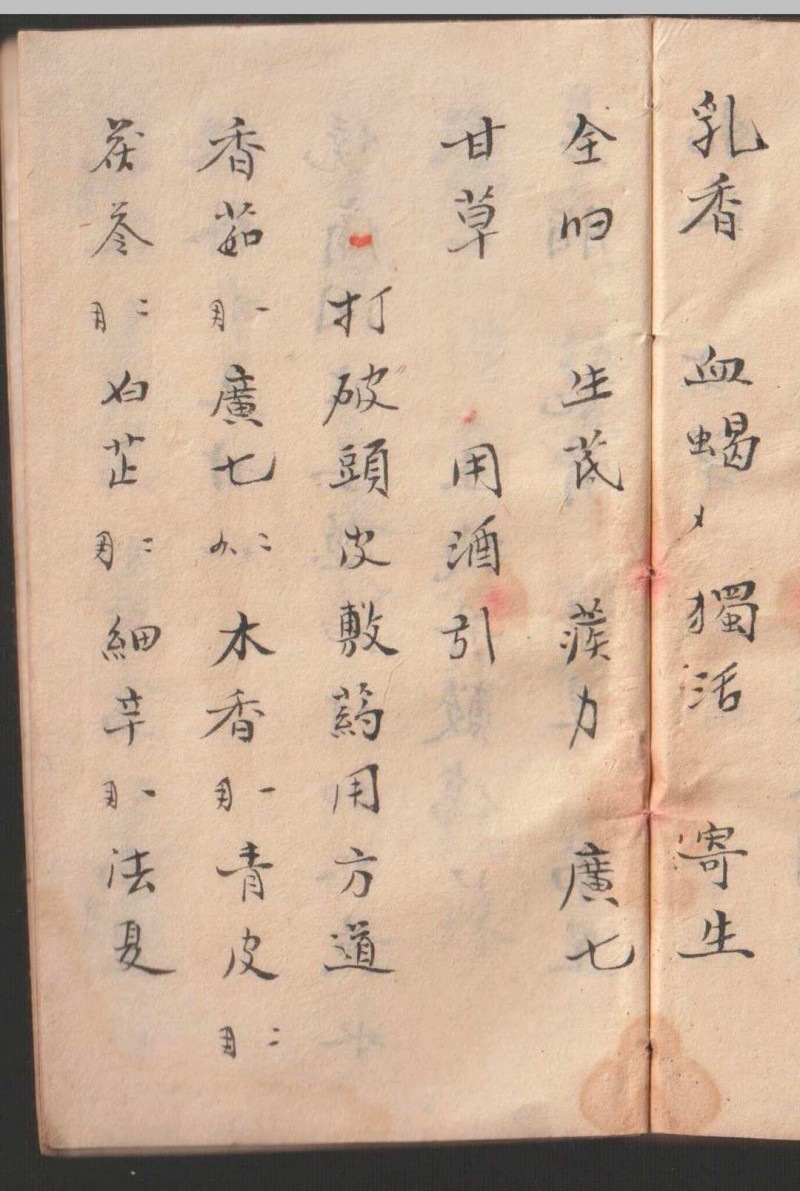 乳香 血蝎 獨活 寄生
全归 生芪 蒺力 廣七
甘草 用酒引
打破頭皮敷藥用方道
香茹 一 廣七 二 木香 一 青皮 二
茯苓 二 白芷 二 細辛 一 法夏